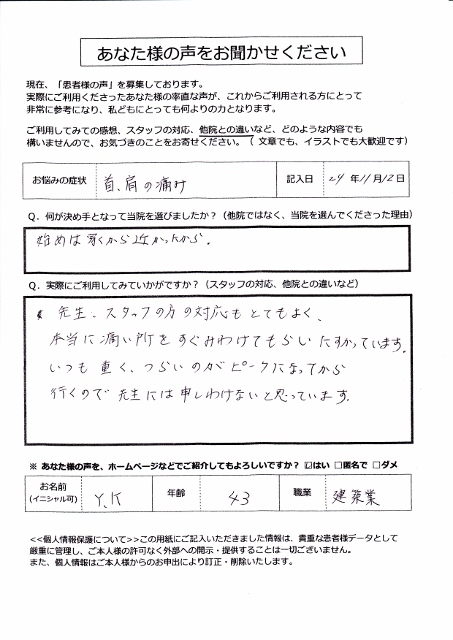 あなた様の声をお聞かせください
現在、「患者様の声」を募集しております。
実際にご利用くださったあなた様の率直な声が、これからご利用される方にとって
非常に参考になり、私どもにとっても何よりの力となります。
ご利用してみての感想、スタッフの対応、他院との違いなど、どのような内容でも
構いませんので、お気づきのことをお寄せください。（ 文章でも、イラストでも大歓迎です）
お悩みの症状 首、肩の痛み 記入日 24年11月12日
Q. 何が決め手となって当院を選びましたか？（他院ではなく、当院を選んでくださった理由）
始めは 家から近かったから。
Q. 実際にご利用してみていかがですか？（スタッフの対応、他院との違いなど）
先生、スタッフの方の対応もとてもよく、
本当に痛い所をすぐみわけてもらいたすかっています。
いつも重く、つらいのがピークになってから
行くので先生には申しわけないと思っています。
※ あなた様の声を、ホームページなどでご紹介してもよろしいですか？ ☑はい □匿名で □ダメ
お名前 (イニシャル可) Y.K 年齢 43 職業 建築業
<<個人情報保護について>>この用紙にご記入いただきました情報は、貴重な患者様データとして
厳重に管理し、ご本人様の許可なく外部への開示・提供することは一切ございません。
また、個人情報はご本人様からのお申出により訂正・削除いたします。